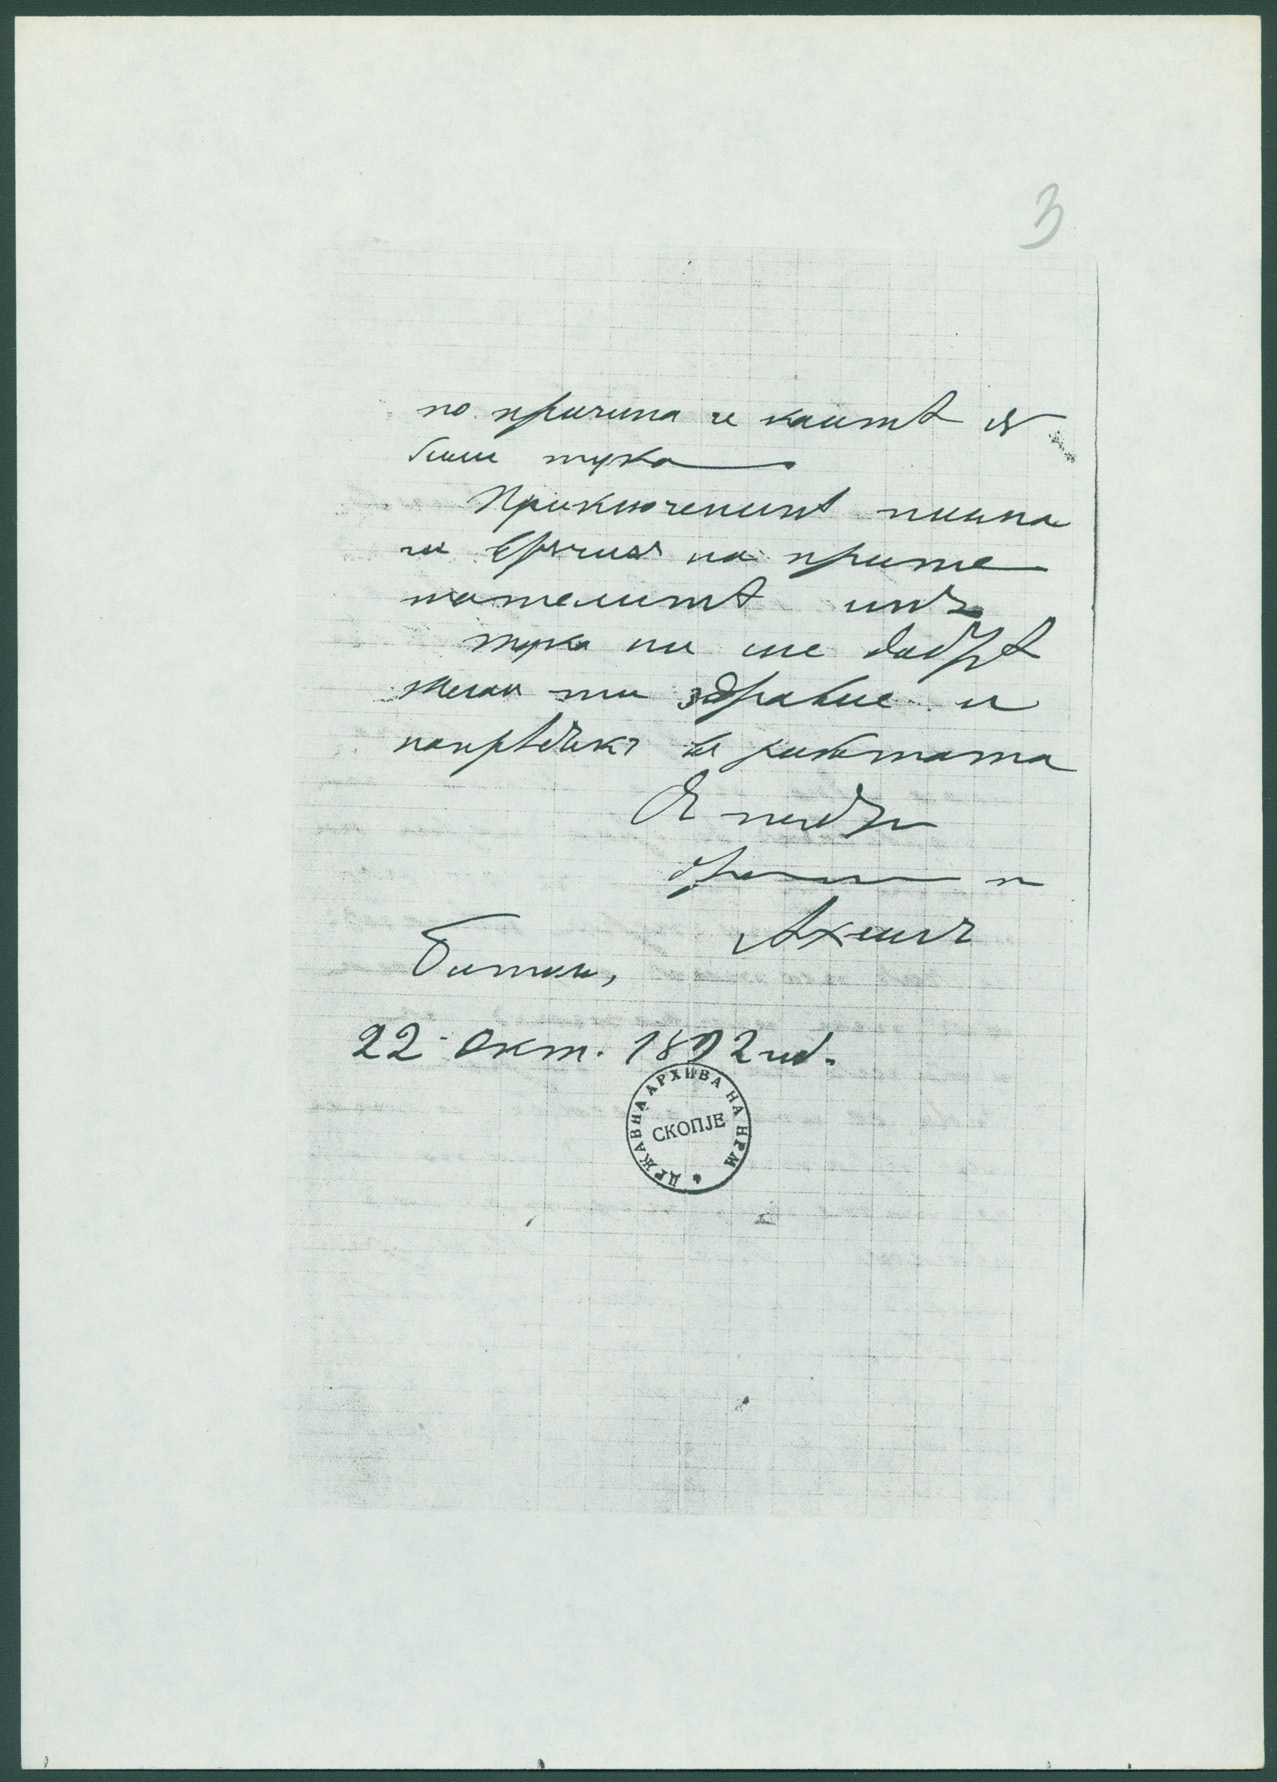 3
по причина че
били тука
Приключенитѣ писма
ги врѫчихъ на прия
телитѣ имъ
тука ни сме добрѣ
желая ти здравие и
напрѣдъкъ въ работата
Ахилъ
Битоля,
22 Окт. 1892 год.
ДРЖАВНА АРХИВА НА НРМ
СКОПЈЕ